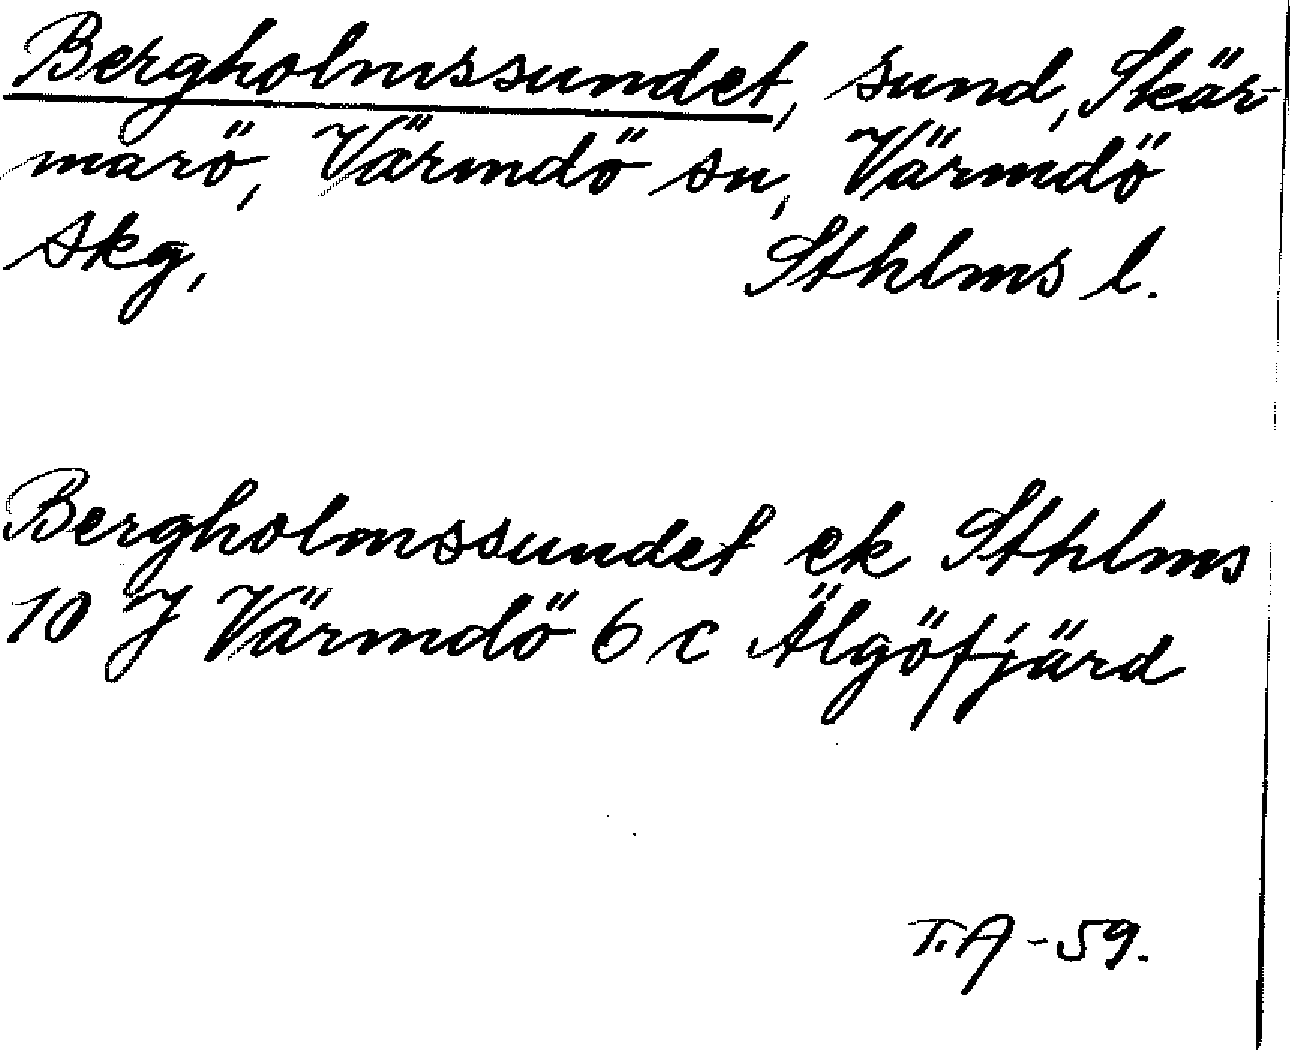 Bergholmssundet, sund, Skär-
marö, Värmdö sn, Värmdö
skg, Sthlms l.
Bergholmssundet ek Sthlms
10 J Värmdö 6 c Älgöfjärd
T.A -59.